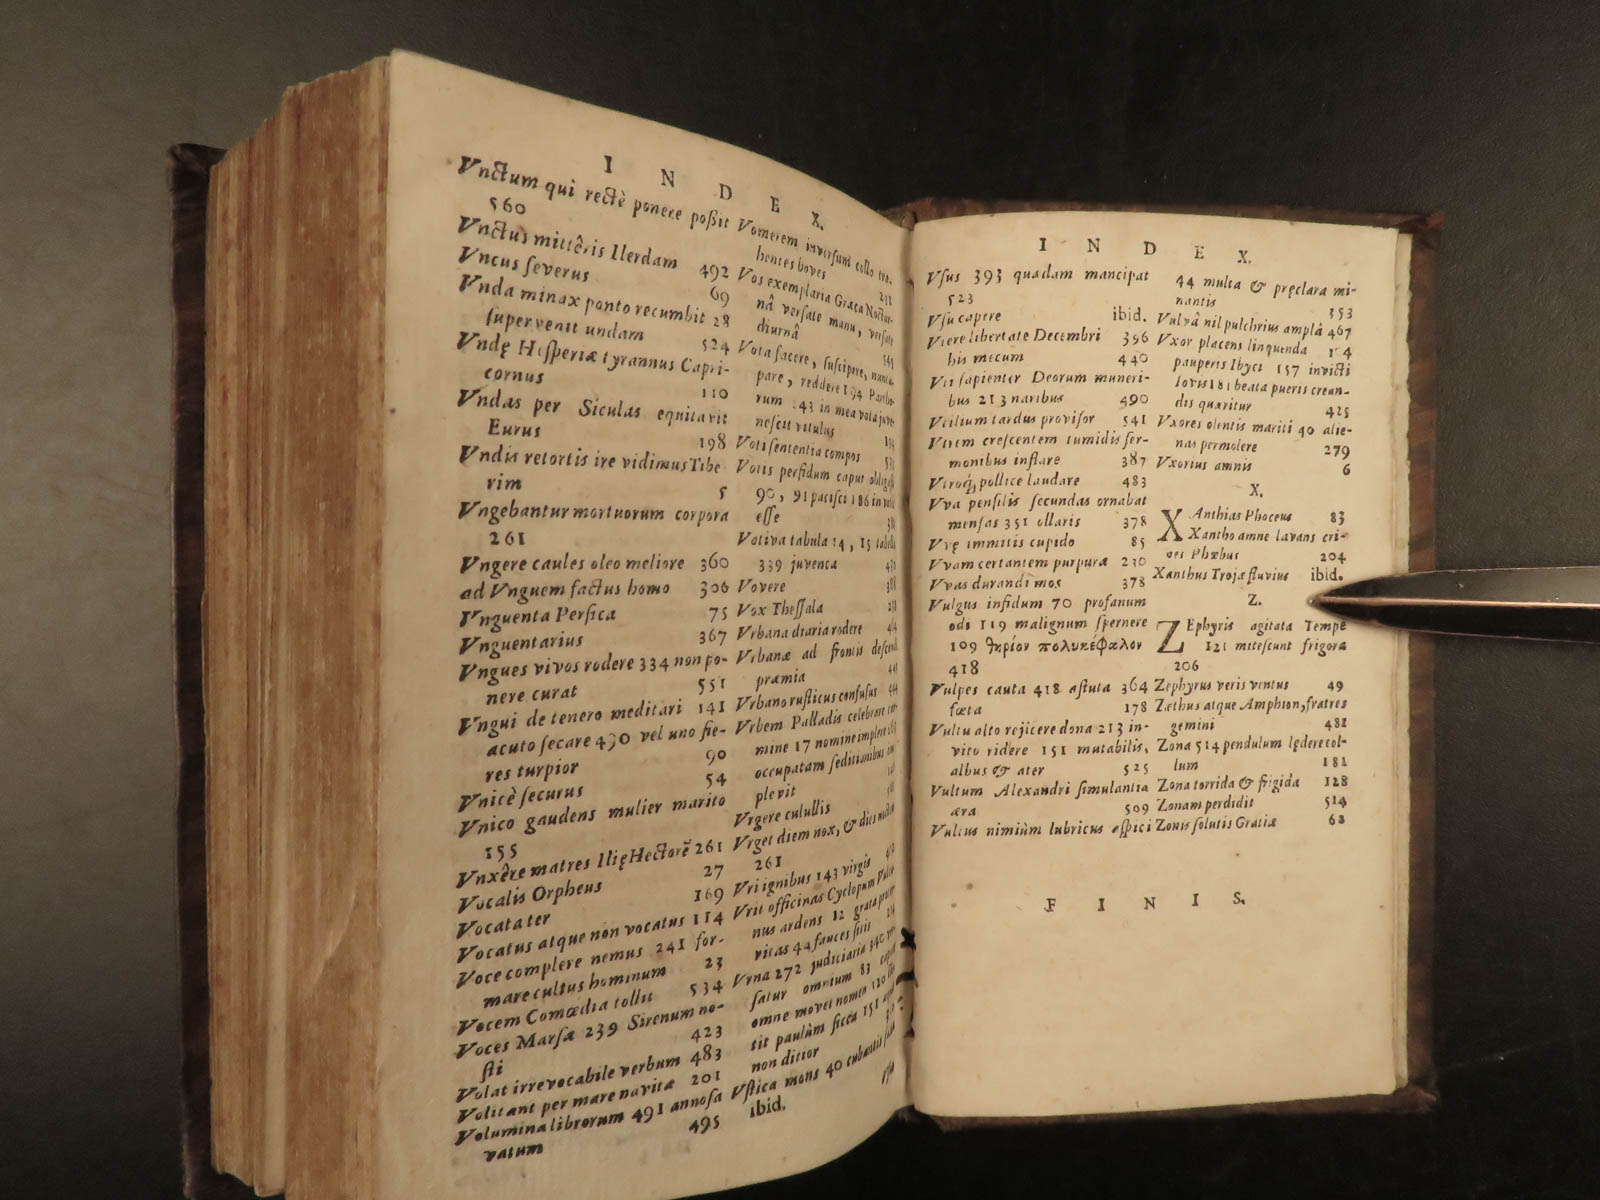 I N D E X.
Vnctum qui rectè ponere poßit
560
Vnctus mittêris Ilerdam 492
Vncus ſeverus 69
Vnda minax ponto recumbit 28
ſupervenit undam 524
Vndę Heſperiæ tyrannus Capri-
cornus 110
Vndas per Siculas equitavit
Eurus 198
Vndis retortis ire vidimus Tibe
rim 5
Vngebantur mortuorum corpora
261
Vngere caules oleo meliore 360
ad Vnguem factus homo 306
Vnguenta Perſica 75
Vnguentarius 367
Vngues vivos rodere 334 non po-
nere curat 551
Vngui de tenero meditari 141
acuto ſecare 490 vel uno fie-
res turpior 90
Vnicè ſecurus 54
Vnico gaudens mulier marito
155
Vnxêre matres Ilię Hectorē 261
Vocalis Orpheus 27
Vocata ter 169
Vocatus atque non vocatus 114
Voce complere nemus 241 for-
mare cultus hominum 23
Vocem Comœdia tollit 534
Voces Marſæ 239 Sirenum no-
ſti 423
Volat irrevocabile verbum 483
Volitant per mare navitæ 201
Volumina librorum 491 annoſa
vatum 495
Vomerem inverſum collo tra-
hentes boves 231
Vos exemplaria Græca Noctur-
nâ verſate manu, verſate
diurnâ
Vota facere, ſuſcipere, nuncu-
pare, reddere 194
rum 143 in mea vota juve-
neſcit vitulus
Voti ſententia compos
Votis perfidum caput obligaſti
90, 91 paciſci 186 in votis
eſſe
Votiva tabula 14, 15 tabella
339 juvenca
Vovere
Vox Theſſala
Vrbana diaria rodere
Vrbanæ ad frontis deſcendi
præmia
Vrbano ruſticus confuſus
Vrbem Palladis celebrare car-
mine 17 nomine implere
occupatam ſeditionibus
plevit
Vrgere culullis
Vrget diem nox, & dies noctem
261
Vri ignibus 143 virgis
Vrit officinas Cyclopum Vulca-
nus ardens 12 grata prote-
vitas 44 fauces ſitis
Vrna 272 judiciaria 340 ver-
ſatur omnium 83 capax
omne movet nomen 120
tit paulùm ſicca 151
non ditior
Vſtica mons 40 cubantis
ibid.
I N D E X.
Vſus 393 quædam mancipat
523
Vſu capere ibid.
Vtere libertate Decembri 396
his mecum 440
Vti ſapienter Deorum muneri-
bus 213 naribus 490
Vtilium tardus proviſor 541
Vtrem creſcentem tumidis ſer-
monibus inflare 387
Vtroq́; pollice laudare 483
Vva penſilis ſecundas ornabat
menſas 351 ollaris 378
Vvę immitis cupido 85
Vvam certantem purpuræ 230
Vvas durandi mos 378
Vulgus infidum 70 profanum
odi 119 malignum ſpernere
109 θηρίον πολυκέφαλον
418
Vulpes cauta 418 aſtuta 364
fœta 178
Vultu alto rejicere dona 213 in-
vito ridere 151 mutabilis,
albus & ater 525
Vultum Alexandri ſimulantia
æra 509
Vultus nimiùm lubricus aſpici
44 multa & pręclara mi-
nantis 353
Vulvâ nil pulchrius amplâ 467
Vxor placens linquenda
pauperis Ibyci 157 invicti
Iovis 181 beata pueris crean-
dis quæritur 425
Vxores olentis mariti 40 alie-
nas permolere 279
Vxorius amnis 6
X.
XAnthias Phoceus 83
Xantho amne lavans cri-
nes Phœbus 204
Xanthus Trojæ fluvius ibid.
Z.
ZEphyris agitata Tempe
121 miteſcunt frigora
206
Zephyrus veris ventus 49
Zæthus atque Amphion, fratres
gemini 481
Zona 514 pendulum lędere col-
lum 181
Zona torrida & frigida 128
Zonam perdidit 514
Zonis ſolutis Gratiæ 62
F I N I S.